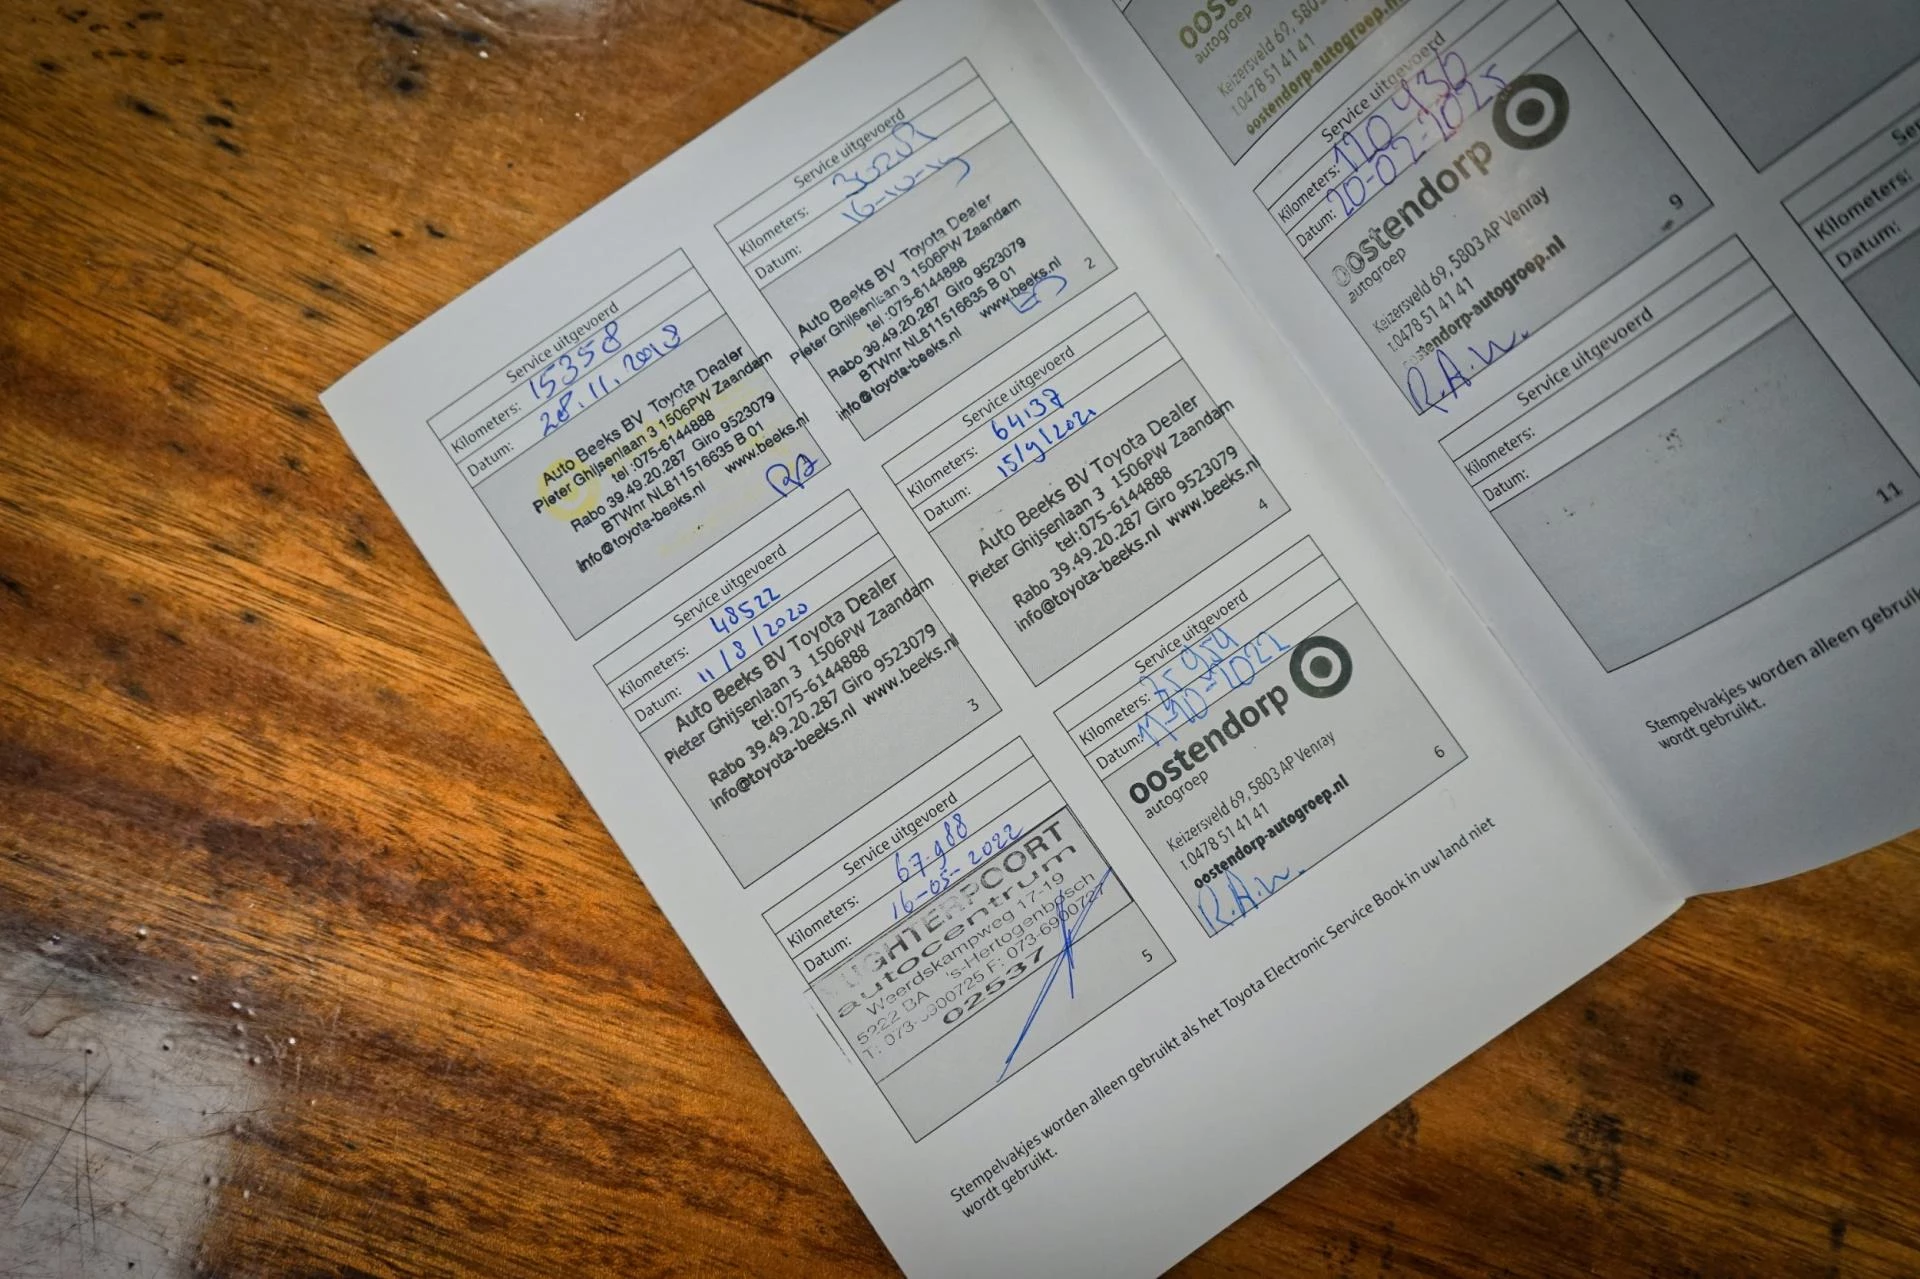 Service uitgevoerd
Kilometers: 15358
Datum: 28.11.2018
Auto Beeks BV Toyota Dealer
Pieter Ghijsenlaan 3 1506PW Zaandam
tel :075-6144888
Rabo 39.49.20.287 Giro 9523079
BTWnr NL811516635 B 01
info@toyota-beeks.nl www.beeks.nl
Service uitgevoerd
Kilometers:
Datum: 16-10-19
Auto Beeks BV Toyota Dealer
Pieter Ghijsenlaan 3 1506PW Zaandam
tel :075-6144888
Rabo 39.49.20.287 Giro 9523079
BTWnr NL811516635 B 01
info@toyota-beeks.nl www.beeks.nl
2
Service uitgevoerd
Kilometers: 48522
Datum: 11/8/2020
Auto Beeks BV Toyota Dealer
Pieter Ghijsenlaan 3 1506PW Zaandam
tel:075-6144888
Rabo 39.49.20.287 Giro 9523079
info@toyota-beeks.nl www.beeks.nl
3
Service uitgevoerd
Kilometers: 64137
Datum: 15/9/2021
Auto Beeks BV Toyota Dealer
Pieter Ghijsenlaan 3 1506PW Zaandam
tel:075-6144888
Rabo 39.49.20.287 Giro 9523079
info@toyota-beeks.nl www.beeks.nl
4
Service uitgevoerd
Kilometers: 67.988
Datum: 16-05-2022
autocentrum
Weerdskampweg 17-19
5222 BA 's-Hertogenbosch
T: 073-6900725 F: 073-6900727
02537
5
Service uitgevoerd
Kilometers: 75 954
Datum: 11-10-2022
oostendorp
autogroep
Keizersveld 69, 5803 AP Venray
T.0478 51 41 41
oostendorp-autogroep.nl
R.A.W.
6
Stempelvakjes worden alleen gebruikt als het Toyota Electronic Service Book in uw land niet
wordt gebruikt.
autogroep
Keizersveld 69,
T.0478 51 41 41
oostendorp-autogroep.nl
Service uitgevoerd
Kilometers: 120 936
Datum: 20-02-2025
oostendorp
autogroep
Keizersveld 69, 5803 AP Venray
T.0478 51 41 41
oostendorp-autogroep.nl
R.A.W.
9
Service uitgevoerd
Kilometers:
Datum:
11
Kilometers:
Datum:
Stempelvakjes worden alleen
wordt gebruikt.